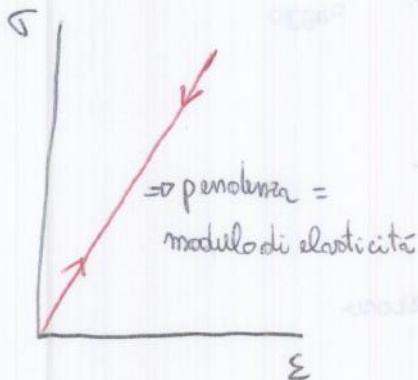 σ
⇒ pendenza =
modulo di elasticità
ε